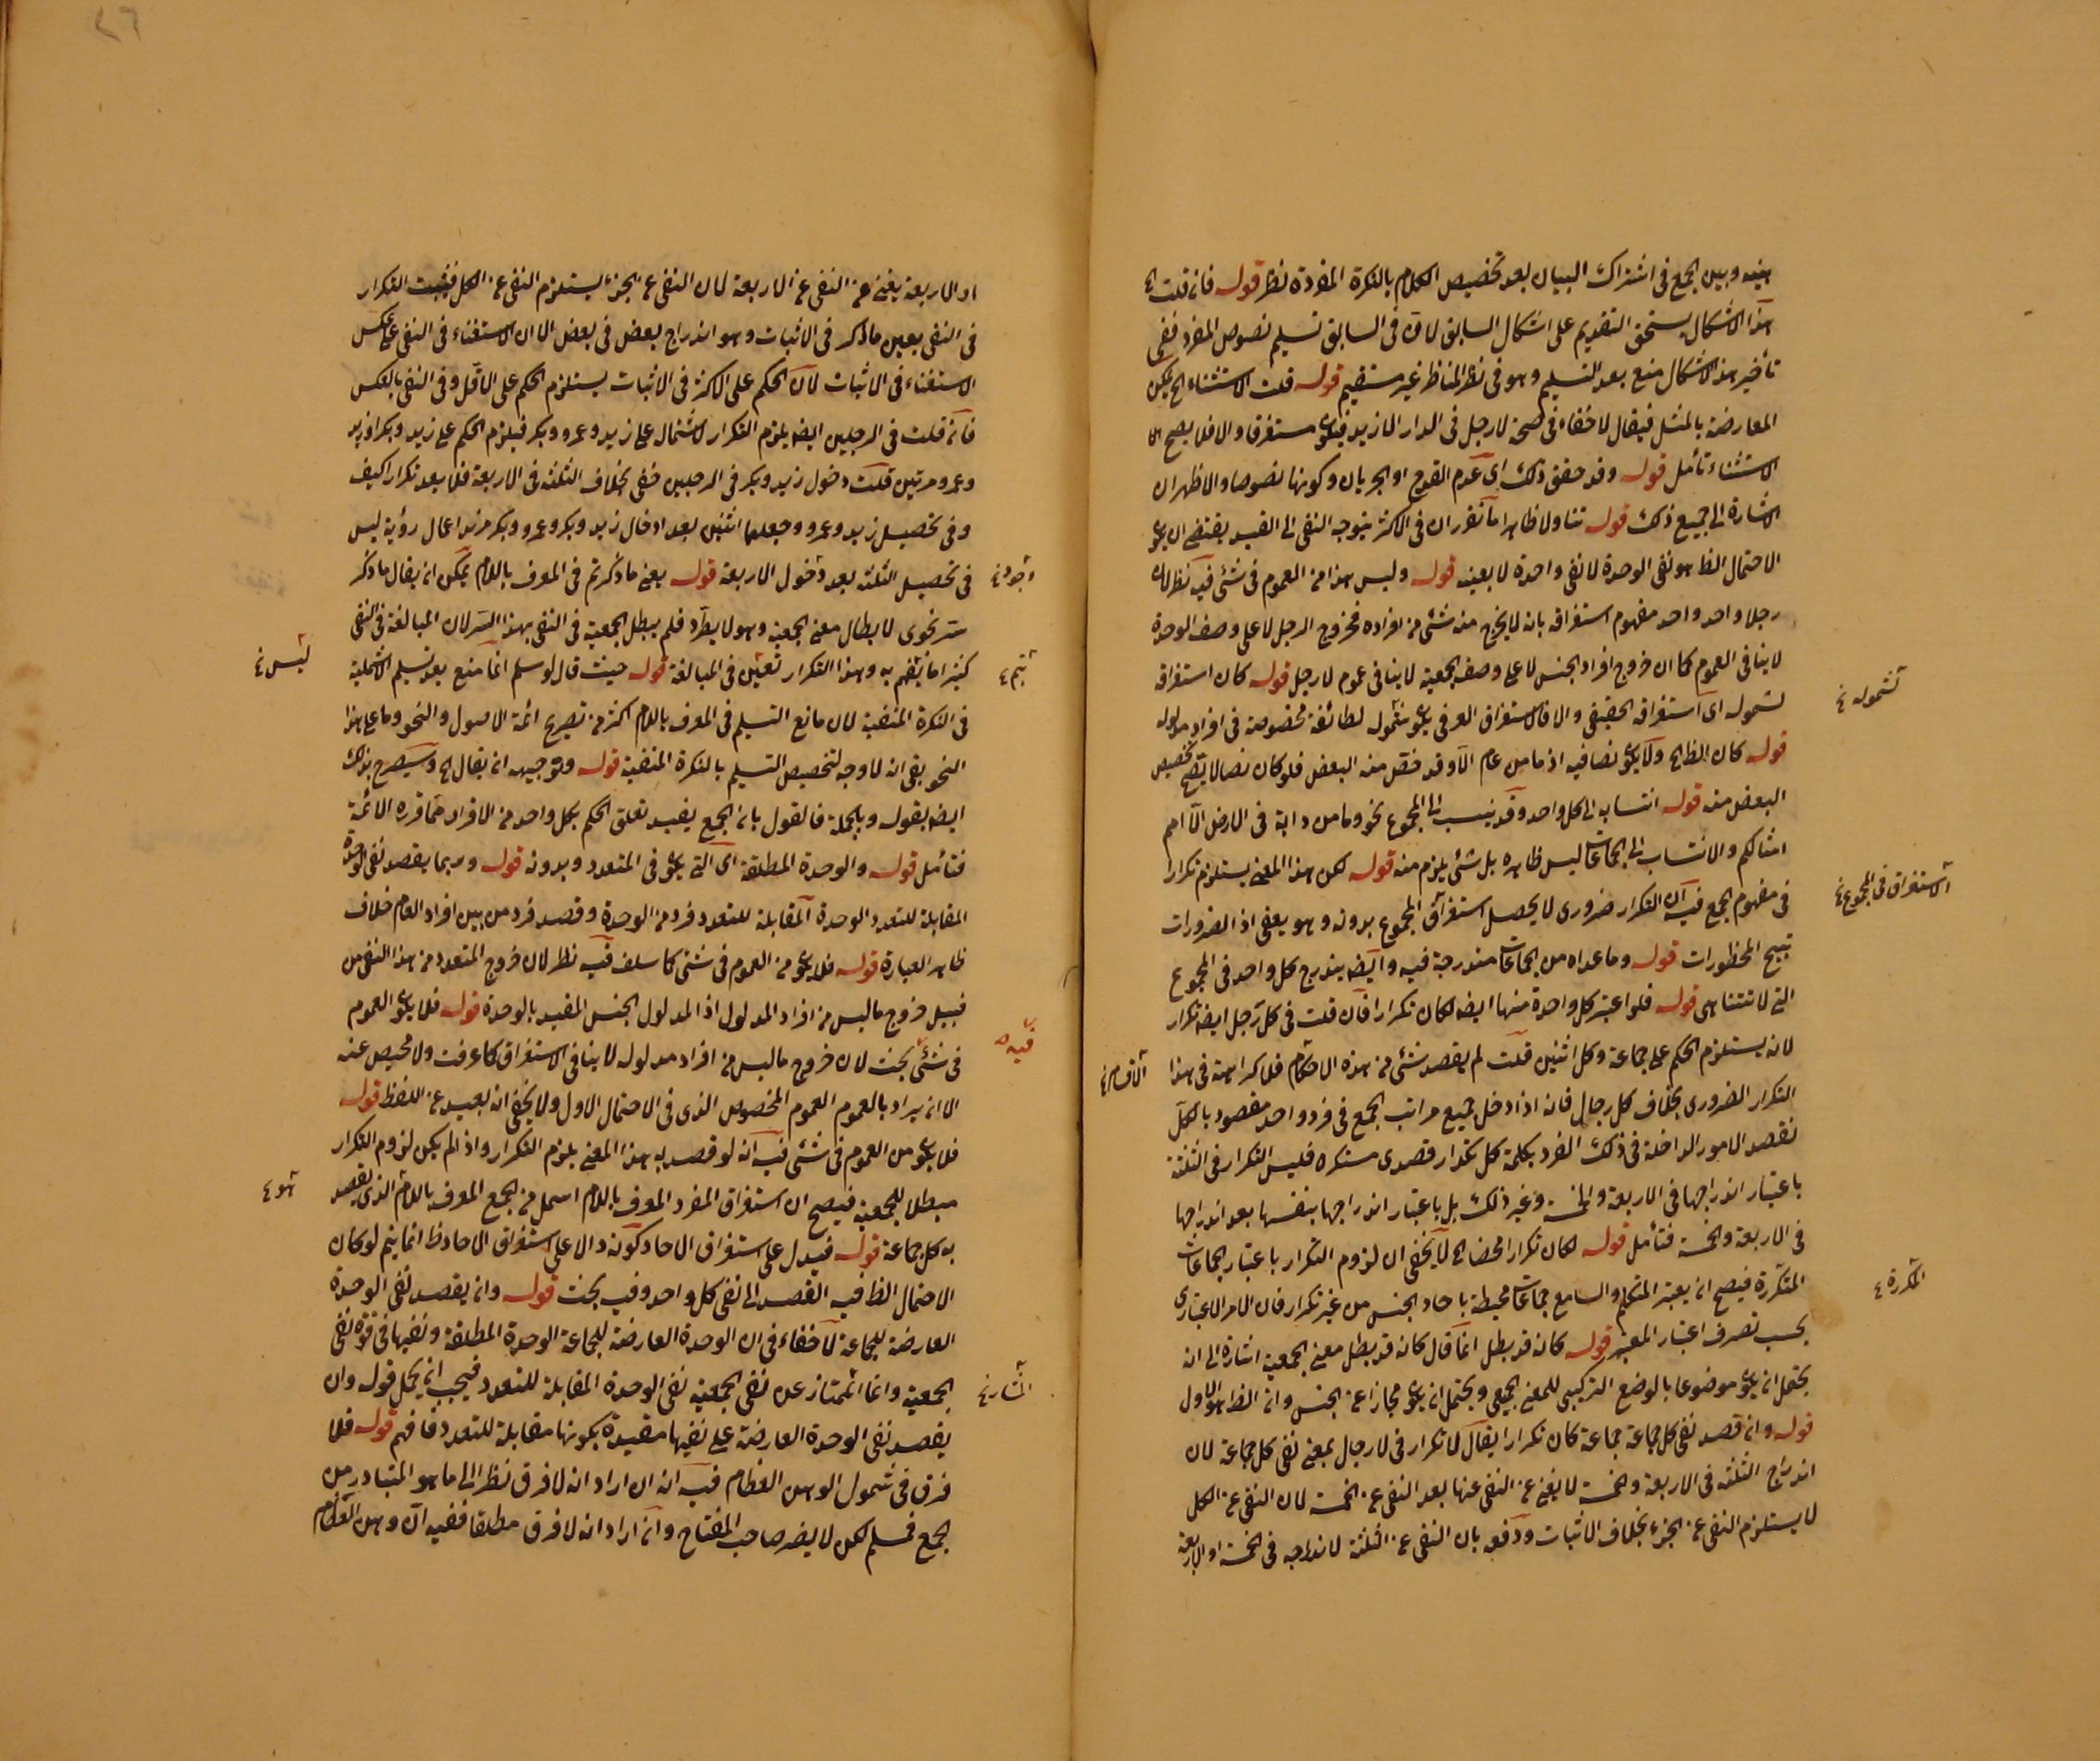 بينه وبين الجمع في اشتراك البيان بعد تخصيص الكلام بالنكرة المفردة نظر قوله فان قلت الخ
هذا الاشكال يستحق التقديم على اشكال السابق لان في السابق تسليم نصوص المفرد ففي
تأخير هذا الاشكال منع بعد التسليم وهو في نظر المناظر غير مستقيم قوله قلت الاستثناء الخ يمكن
المعارضة بالمثل فيقال لا خفاء في صحة لا رجل في الدار الا زيد فيكون مستغرقا والا فلا يصح
الاستثناء تأمل قوله وقد حقق ذلك اى عدم القدح او الجريان وكونها نصوصا والاظهر ان
الاشارة الى جميع ذلك قوله تناولا ظاهرا ما تقرر ان في الاكثر يتوجه النفى الى القيد يقتضى ان يكون
الاحتمال الظ هو نفى الوحدة لا نفى واحدة لا بعينه قوله وليس هذا من العموم في شئ فيه نظر لان
رجلا واحد واحد مفهوم استغراقه بان لا يخرج منه شئ من افراده فخروج الرجل لا على وصف الوحدة
لا ينافى العموم كما ان خروج افراد الجنس لا على وصف الجمعية لا ينافى عموم لا رجل قوله كان استغراقه
لشموله اى استغراقه الحقيقى والا فالاستغراق العرفى يكون شموله لطائفة مخصوصة في افراد مدلوله
قوله كان الظ الخ ولا يكون نصا فيه اذ ما من عام الا وقد خص منه البعض فلو كان نصا لا يصح تخصيص
البعض منه قوله انتسابه الى كل واحد وقد ينسب الى المجموع نحو وما من دابة في الارض الا امم
امثالكم والانتساب الى الجماعات ليس ظاهره بل شئ يلزم منه قوله لكن هذا المعنى يستلزم تكرارا
في مفهوم الجمع فيه ان التكرار ضرورى لا يحصل استغراق المجموع بدونه وهو يعفى اذ الضرورات
تبيح المحظورات قوله وما عداه من الجماعات مندرجة فيه وايضا يندرج كل واحد في المجموع
التى لا تتناهى قوله فلو اعتبر كل واحدة منها ايضا لكان تكرارا فان قلت في كل رجل ايضا تكرار
لانه يستلزم الحكم على جماعة وكل اثنين قلت لم يقصد شئ من هذه الاحكام فلا كراهة في هذا
التكرار الضرورى بخلاف كل رجال فانه اذا دخل جميع مراتب الجمع في فرد واحد مقصود بالكل
نقصد الامور الداخلة في ذلك الفرد بكلمة كل تكرار قصدى مستكره فليس التكرار في الثلثة
باعتبار اندراجها في الاربعة والخمسة وغير ذلك بل باعتبار اندراجها بنفسها بعد اندراجها
في الاربعة والخمسة فتأمل قوله لكان تكرارا محضا الخ لا يخفى ان لزوم التكرار باعتبار الجماعات
المتكررة فيصح ان يعتبر المتكلم والسامع جماعات محيطة باحاد الجنس من غير تكرار فان الامر الاعتبارى
بحسب تصرف اعتبار المعتبر قوله كانه قد بطل انما قال كانه قد بطل معنى الجمعية اشارة الى انه
يحتمل ان يكون موضوعا بالوضع التركيبى للمعنى الجمعى ويحتمل ان يكون مجازا عن الجنس وان الظ هو الاول
قوله وان قصد نفى كل جماعة جماعة كان تكرارا يقال لا تكرار في لا رجال بمعنى نفى كل جماعة لان
اندراج الثلثة في الاربعة والخمسة لا يغنى عن النفى عنها بعد النفى عن الخمسة لان النفى عن الكل
لا يستلزم النفى عن الجزء بخلاف الاثبات ودفعه بان النفى عن الثلثة لاندراجه في الخمسة او الاربعة
شموله
الاستغراق في المجموع
الاقسام
المكررة
او الاربعة يغنى عن النفى عن الاربعة لان النفى عن الجزء يستلزم النفى عن الكل فيثبت التكرار
في النفى بعين ما ذكر في الاثبات وهو اندراج بعض في بعض الا ان الاستغناء في النفى على عكس
الاستغناء في الاثبات لان الحكم على الاكثر في الاثبات يستلزم الحكم على الاقل وفى النفى بالعكس
فان قلت في الرجلين ايضا يلزم التكرار لاشتماله على زيد وعمرو وبكر فيلزم الحكم على زيد وبكر او زيد
وعمرو مرتين قلت دخول زيد وبكر في الرجلين خفى بخلاف الثلثة في الاربعة فلا يعد تكرارا كيف
وفى تحصيل زيد وعمرو وجعلهما اثنين بعد ادخال زيد وبكر وعمرو وبكر مزيد اعمال روية ليس
في تحصيل الثلثة بعد دخول الاربعة قوله يعنى ما ذكرتم في المعرف باللام يمكن ان يقال ما ذكر
سر نحوى لابطال معنى الجمعية وهو لا يطرد فلم يبطل الجمعية في النفى بهذا السر لان المبالغة في النفى
كثيرا ما يهتم به وهذا التكرار تعين في المبالغة قوله حيث قال لو سلم انما منع بعد تسليم الاشملية
في النكرة المنفية لان مانع التسليم في المعرف باللام اكثر من تصريح ائمة الاصول والنحو وما على هذا
النحو بقى انه لا وجه لتخصيص التسليم بالنكرة المنفية قوله وتوجيهه ان يقال الخ وسيصرح بذلك
ايضا بقوله وبالجملة فالقول بان الجمع يفيد تعلق الحكم بكل واحد من الافراد مما قرره الائمة
فتأمل قوله والوحدة المطلقة اى التى يكون في المتعدد وبدونه قوله وربما يقصد نفى الوحدة
المقابلة للتعدد الوحدة المقابلة للتعدد فرد من الوحدة وقصد فرد من بين افراد العام خلاف
ظاهر العبارة قوله فلا يكون من العموم في شئ كما سلف فيه نظر لان خروج المتعدد من هذا النفى من
قبيل خروج ما ليس من افراد المدلول اذ المدلول الجنس المقيد بالوحدة قوله فلا يكون العموم
في شئ بحث لان خروج ما ليس من افراد مدلوله لا ينافى الاستغراق كما عرفت ولا محيص عنه
الا ان يراد بالعموم العموم المخصوص الذى في الاحتمال الاول ولا يخفى انه بعيد عن اللفظ قوله
فلا يكون من العموم في شئ فيه انه لو قصد به هذا المعنى يلزم التكرار واذ لم يكن لزوم التكرار
مبطلا للجمعية فيصح ان استغراق المفرد المعرف باللام اشمل من الجمع المعرف باللام الذى يقصد
به كل جماعة قوله فيدل على استغراق الاحاد كونه دالا على استغراق الاحاد ظ انما يتم لو كان
الاحتمال الظ فيه القصد الى نفى كل واحد وفيه بحث قوله وان يقصد نفى الوحدة
العارضة للجماعة لا خفاء في ان الوحدة العارضة للجماعة الوحدة المطلقة ونفيها في قوة نفى
الجمعية وانما الممتاز عن نفى الجمعية نفى الوحدة المقابلة للتعدد فيجب ان يحمل قوله وان
يقصد نفى الوحدة العارضة على نفيها مقيدة بكونها مقابلة للتعدد فافهم قوله فلا
فرق في شمول الوهن العظام فيه انه ان اراد انه لا فرق نظرا الى ما هو المتبادر من
الجمع فمسلم لكن لا يضر صاحب المفتاح وان اراد انه لا فرق مطلقا ففيه ان وهن العظام
وجود
ليس
يتم
فيه
هو
الشارح